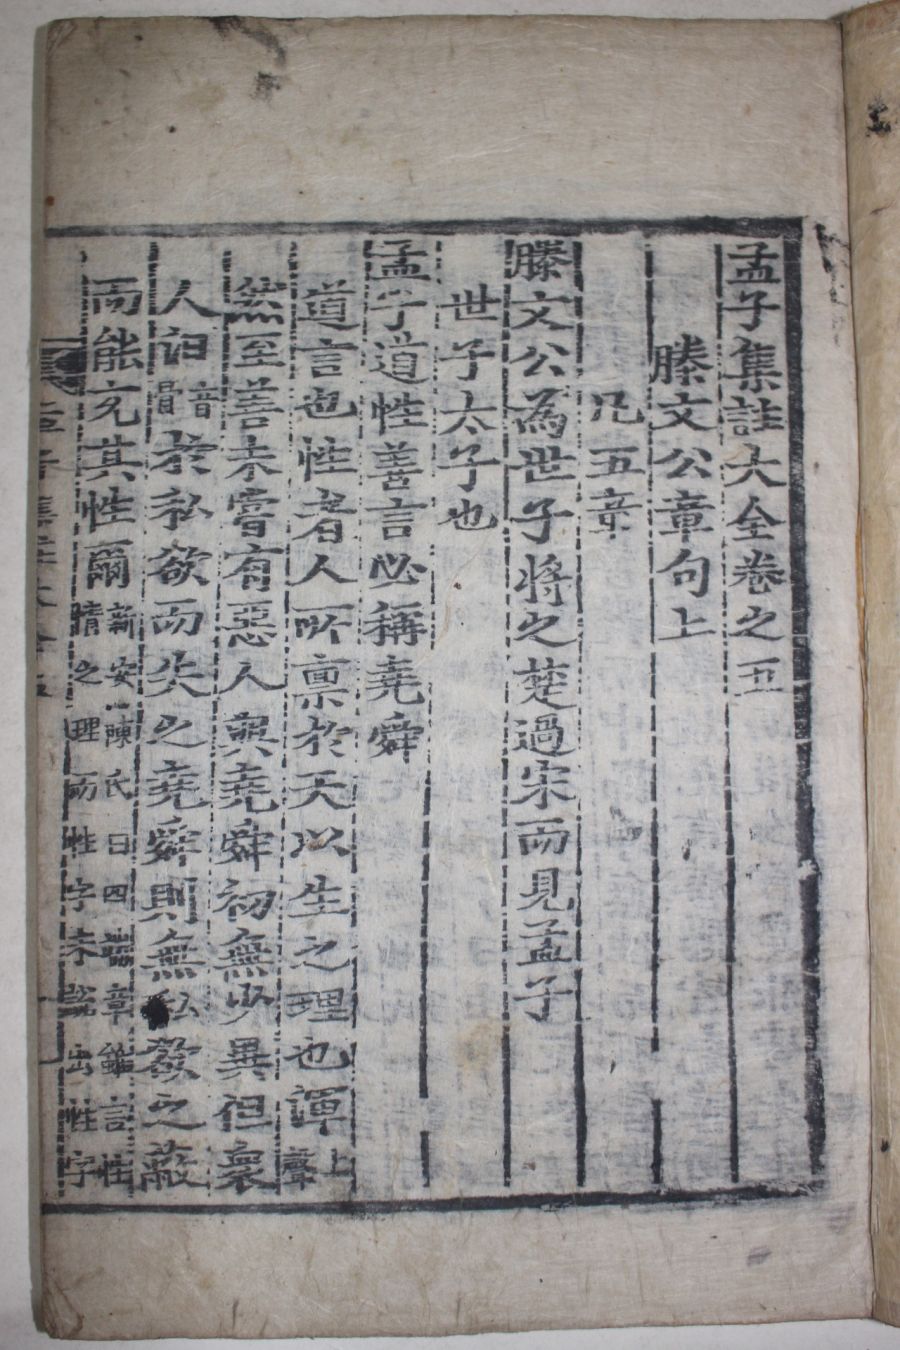 孟子集註大全卷之五
滕文公章句上
凡五章
滕文公為世子將之楚過宋而見孟子
世子太子也
孟子道性善言必稱堯舜
道言也性者人所稟於天以生之理也渾上聲
然至善未嘗有惡人與堯舜初無少異但衆
人汩音骨於私欲而失之堯舜則無私欲之蔽
而能充其性爾新安陳氏曰四端章雖言性
情之理而性字未嘗出性字
孟子集註大全卷五